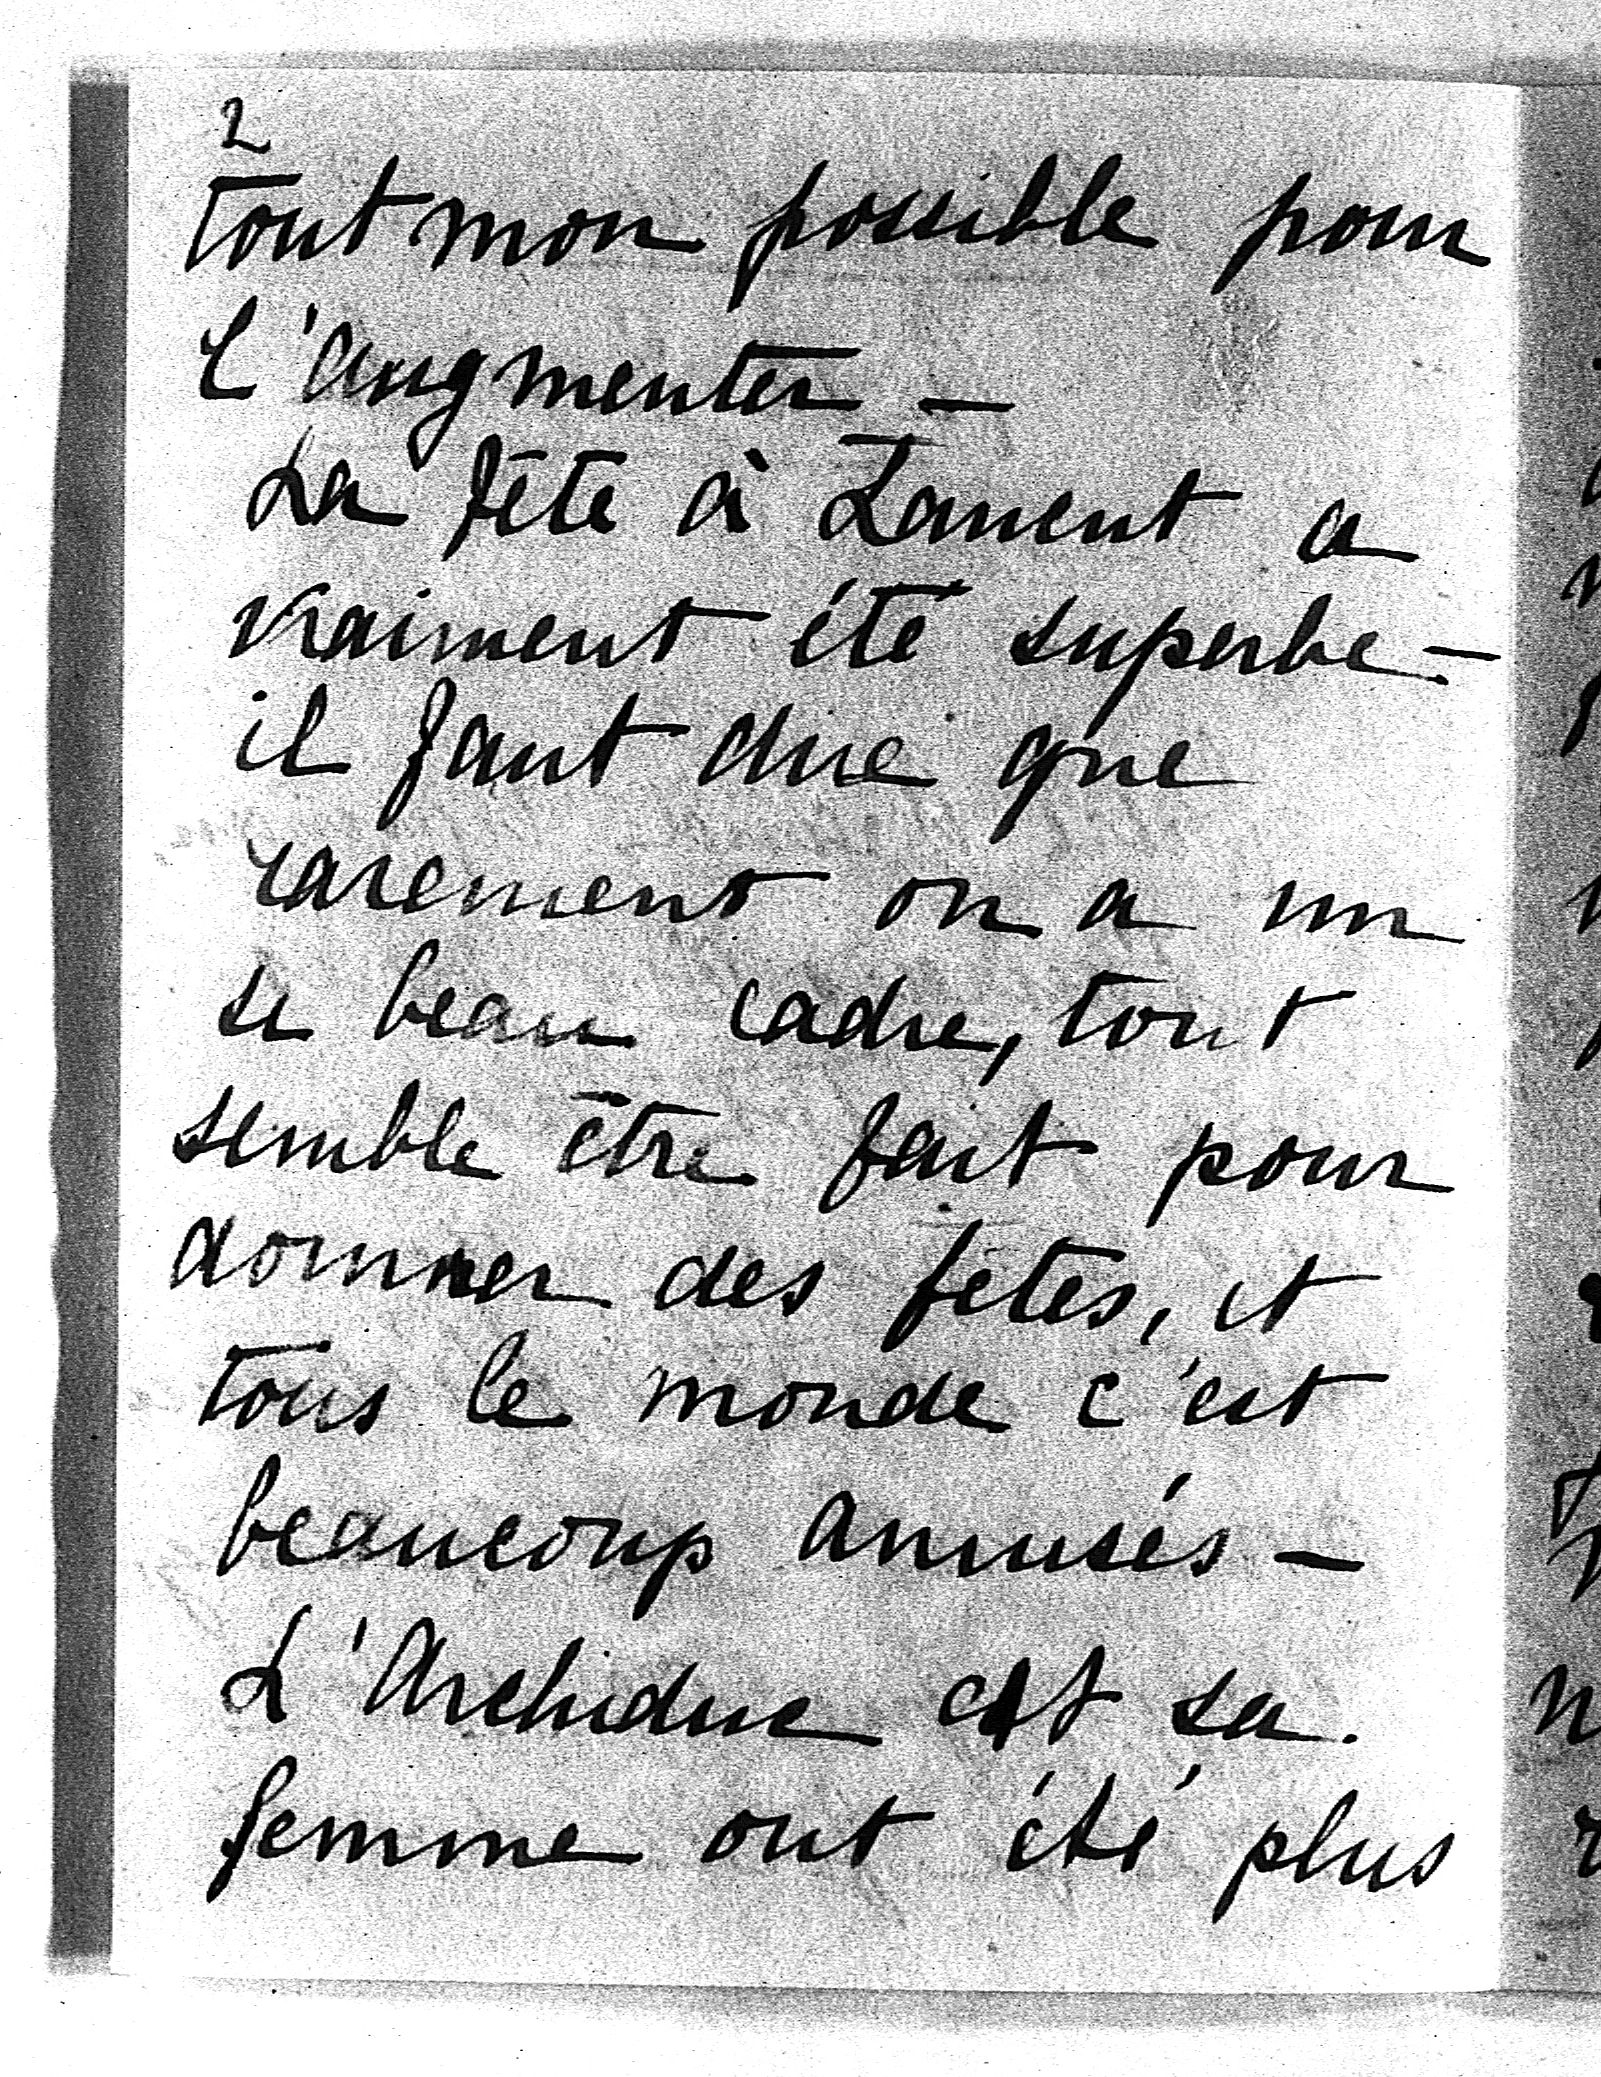 2
tout mon possible pour
l'augmenter —
La fête à Lancut a
vraiment été superbe —
il faut dire que
rarement on a un
si beau cadre, tout
semble être fait pour
donner des fêtes, et
tous le monde c'est
beaucoup amusés —
L'Archiduc et sa
femme ont été plus